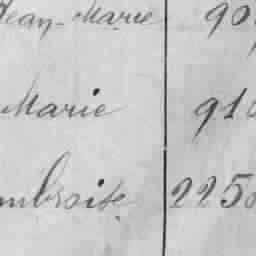 Jean-Marie 90
Marie 910
mbroise 2250